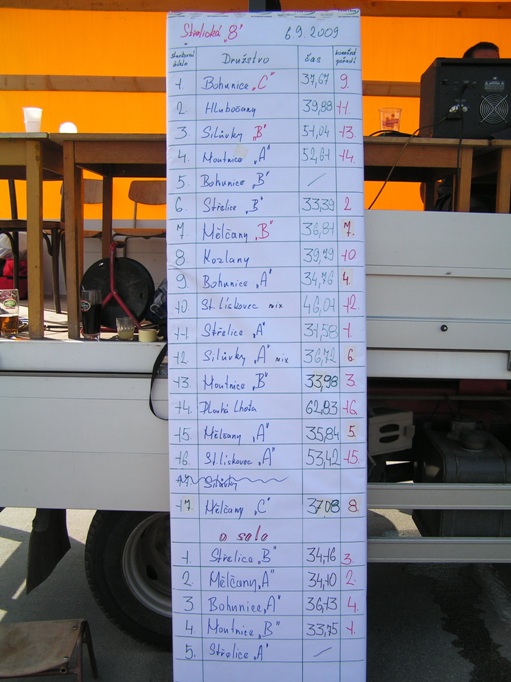 Střelická „8" 6.9.2009
startovní číslo Družstvo čas konečné pořadí
1. Bohunice „C" 37,67 9.
2. Hlubočany 39,88 11.
3. Silůvky „B" 51,04 13.
4. Moutnice „A" 52,61 14.
5. Bohunice „B" /
6. Střelice „B" 33,39 2.
7. Mělčany „B" 36,81 7.
8. Kozlany 39,79 10.
9. Bohunice „A" 34,76 4.
10. St. Lískovec mix 46,01 12.
11. Střelice „A" 31,58 1.
12. Silůvky „A" mix 36,72 6.
13. Moutnice „B" 33,98 3.
14. Dlouhá Lhota 62,83 16.
15. Mělčany „A" 35,84 5.
16. St. Lískovec „A" 53,42 15.
17. Silůvky
17. Mělčany „C" 37,08 8.
o sele
1. Střelice „B" 34,16 3.
2. Mělčany „A" 34,10 2.
3. Bohunice „A" 36,13 4.
4. Moutnice „B" 33,75 1.
5. Střelice „A" /